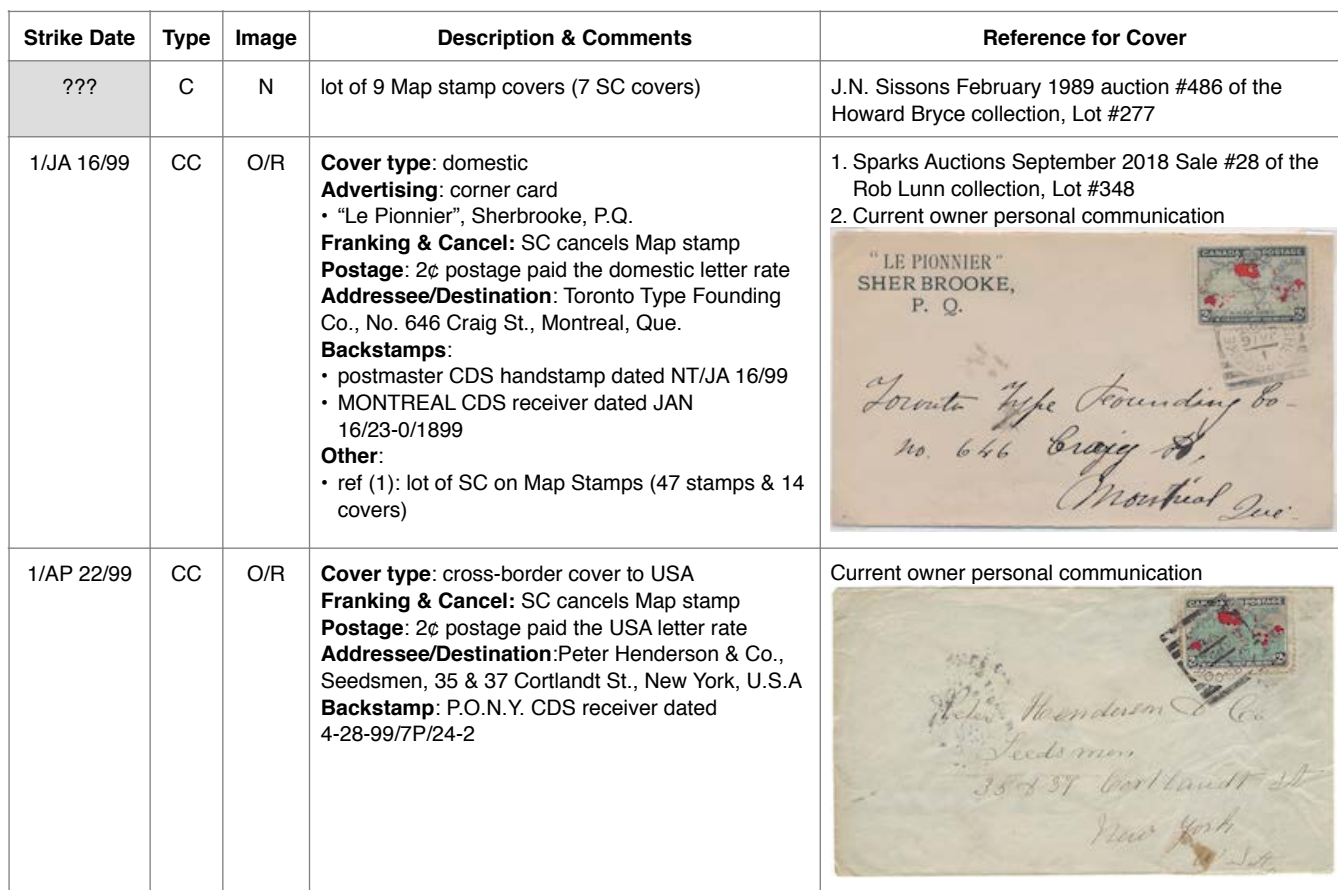 Strike Date Type Image Description & Comments Reference for Cover
??? C N lot of 9 Map stamp covers (7 SC covers) J.N. Sissons February 1989 auction #486 of the
Howard Bryce collection, Lot #277
1/JA 16/99 CC O/R
Cover type: domestic
Advertising: corner card
• “Le Pionnier”, Sherbrooke, P.Q.
Franking & Cancel: SC cancels Map stamp
Postage: 2¢ postage paid the domestic letter rate
Addressee/Destination: Toronto Type Founding
Co., No. 646 Craig St., Montreal, Que.
Backstamps:
• postmaster CDS handstamp dated NT/JA 16/99
• MONTREAL CDS receiver dated JAN
16/23-0/1899
Other:
• ref (1): lot of SC on Map Stamps (47 stamps & 14
covers)
1. Sparks Auctions September 2018 Sale #28 of the
Rob Lunn collection, Lot #348
2. Current owner personal communication
" LE PIONNIER "
SHERBROOKE,
P. Q.
CANADA POSTAGE
Toronto Type Founding Co-
no. 646 Craig St,
Montreal Que.
1/AP 22/99 CC O/R
Cover type: cross-border cover to USA
Franking & Cancel: SC cancels Map stamp
Postage: 2¢ postage paid the USA letter rate
Addressee/Destination:Peter Henderson & Co.,
Seedsmen, 35 & 37 Cortlandt St., New York, U.S.A
Backstamp: P.O.N.Y. CDS receiver dated
4-28-99/7P/24-2
Current owner personal communication
POSTAGE
Peter Henderson & Co
Seedsmen
35 & 37 Cortlandt St
New York